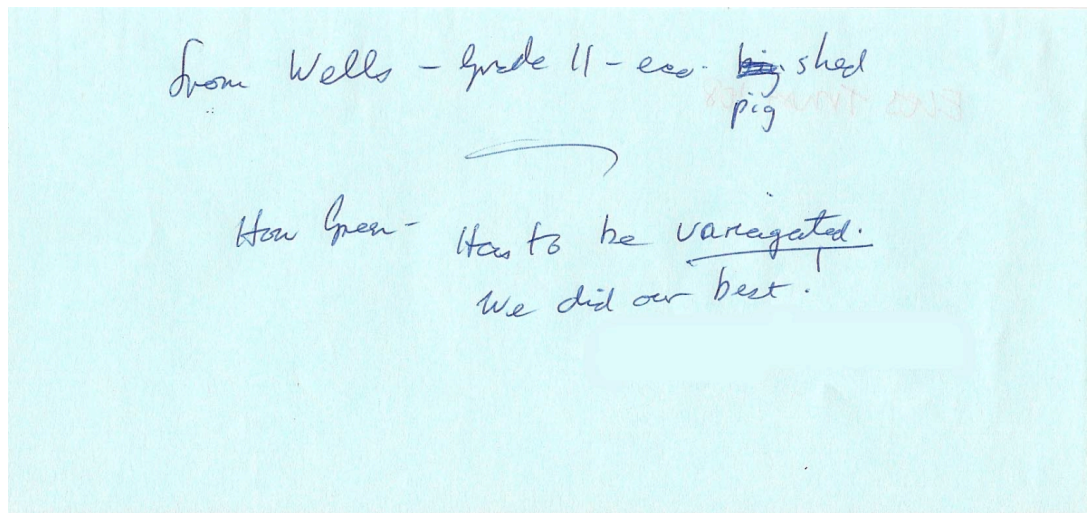 from Wells - Grade II - eco. shed
pig
How Green - Has to be variegated.
We did our best!